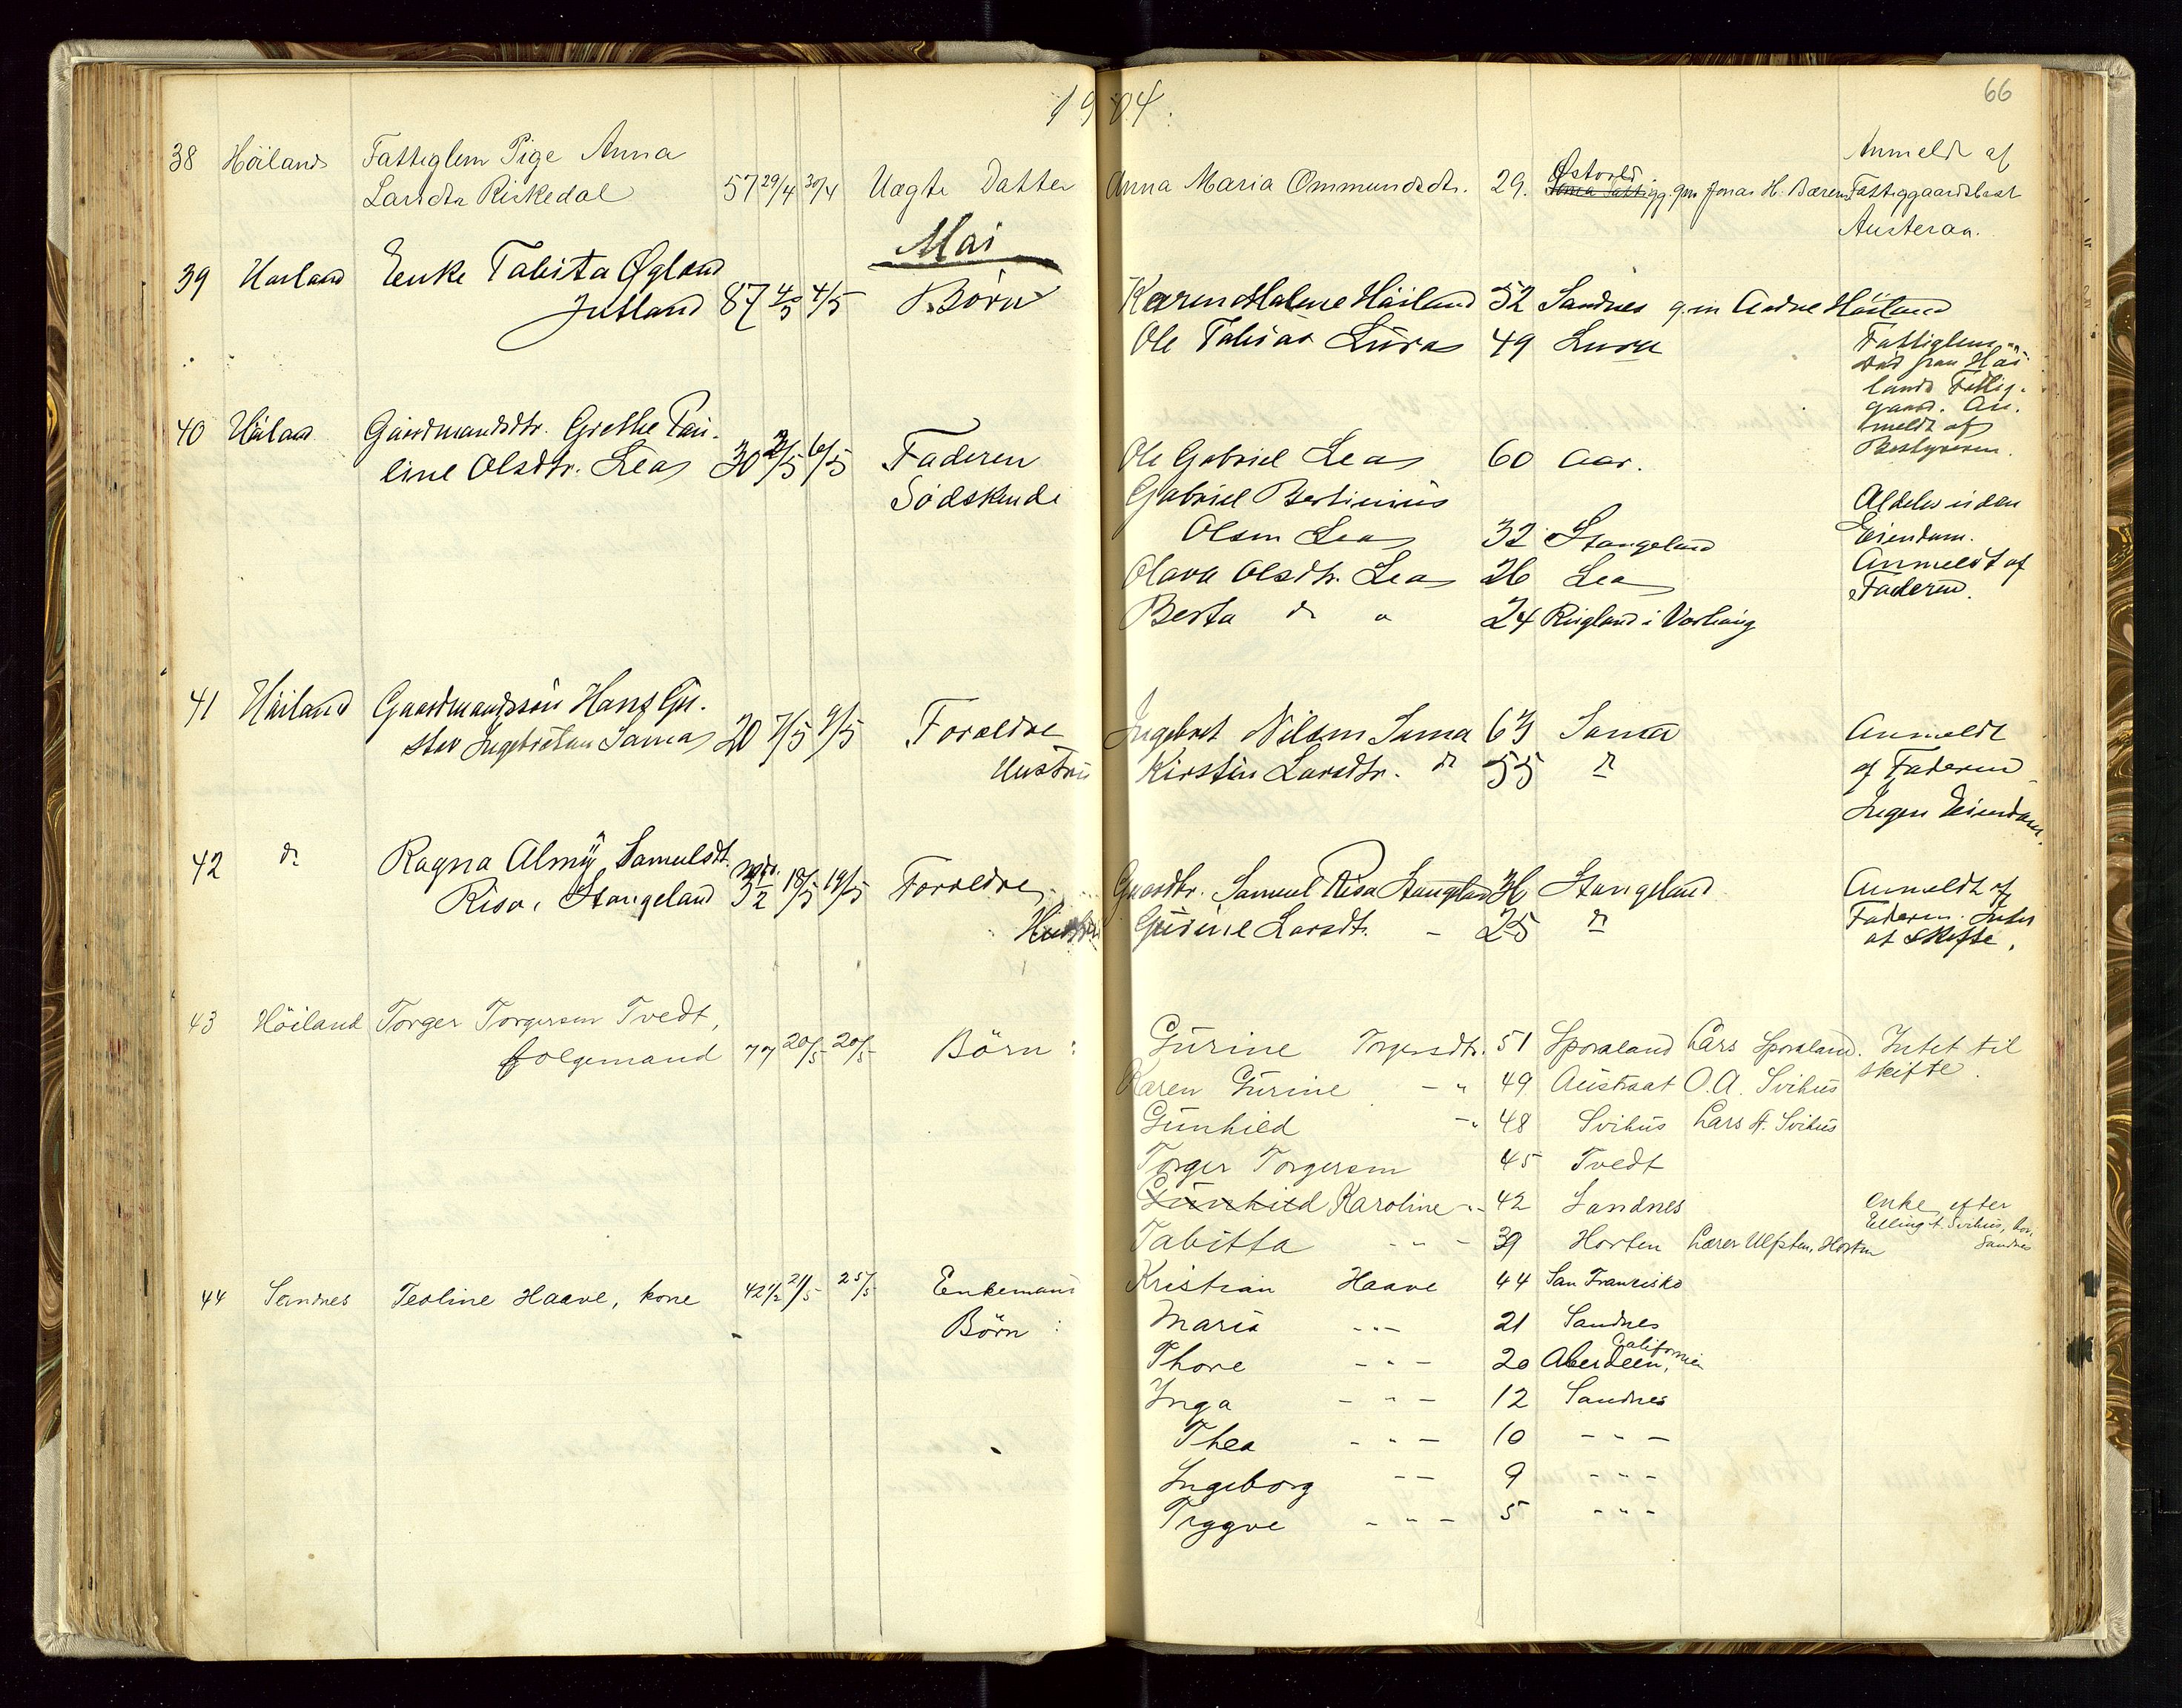 1904.
66
38 Höiland Fattiglem Pige Anna
Larsdtr Riskedal 57 29/4 30/4 Uægte Datter Anna Maria Ommundsdtr. 29. Østvold gm Jonas H. Bærem
Anmeldt af
Fattiggaardsbest
Austeraa.
Mai
39 Høiland Enke Tabita Øgland
Jutland 87 4/5 4/5 Börn Karen Malene Häiland 52 Sandnes g. m Andne Häiland
Ole Tobias Lura 49 Lura
Fattiglem
død paa Häi-
lands Fattig-
gaard. An-
meldt af
Bestyreren.
40 Häiland Gaardmandsdtr. Grethe Pau-
line Olsdtr. Lea 30 2/5 6/5 Faderen Ole Gabriel Lea 60 Aar.
Södskende Gabriel Bertinius
Olsen Lea 32 Stangeland
Olava Olsdtr. Lea 26 Lea
Berta do " 24 Ringland i Varhaug
Aldeles uden
Eiendom.
Anmeldt af
Faderen.
41 Häiland Gaardmandssön Hans Gu-
stav Ingebretsen Soma 20 7/5 9/5 Forældre Ingebret Nilsen Soma 63 Soma
Hustru Kirstin Larsdtr. do 55 do
Anmeldt
af Faderen
Ingen Eiendom.
42 do Ragna Almy Samuelsdt. mdr.
Risa, Stangeland 3 1/2 18/5 19/5 Forældre Gaardbr. Samuel Risa Stangeland 36 Stangeland
Hustru Gurine Larsdt. - 25 do
Anmeldt af
Faderen. Intet
at skifte.
43 Höiland Torger Torgersen Tvedt,
folgemand 77 20/5 20/5 Börn: Gurine Torgersdtr. 51 Sporaland Lars Sporaland. Intet til
skifte.
Karen Gurine - " 49 Austraat O. A. Svihus
Gunhild - " 48 Svihus Lars A. Svihus
Torger Torgersen 45 Tvedt
Gunhild Karoline - " - 42 Sandnes enke efter
Elling A. Svihus,
Sandnes
Tabitta - " - 39 Horten Lærer Ulfsten, Horten
44 Sandnes Teoline Haave, kone 42 1/2 21/5 25/5 Enkemand Kristian Haave 44 San Franzisko
Börn: Maria - " - 21 Sandnes
Thore - " - 20 Aberdeen, Californien
Inga - " - 12 Sandnes
Thea - " - 10 - " -
Ingeborg - - 9 - " -
Trggve - " - 5 - " -